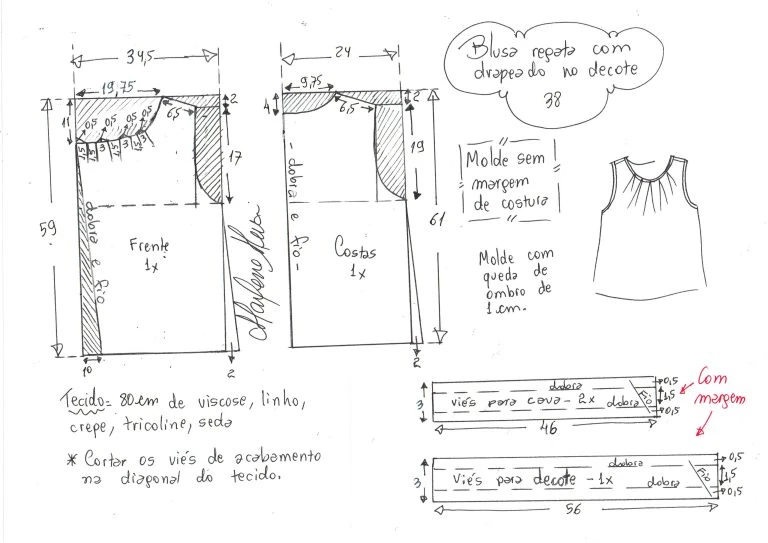 Blusa regata com
drapeado no decote
38
34,5
19,75
2
11
0,5 0,5 0,5 0,5
1,5 1,5 3 1,5 3 1,5 3
6,5
17
59
dobra e fio
Frente
1x
10
2
24
9,75
2
4
6,5
19
61
- dobra e fio -
Costas
1x
2
Molde sem
margem
de costura
Molde com
queda de
ombro de
1 cm.
Tecido = 80 cm de viscose, linho,
crepe, tricoline, seda
* Cortar os viés de acabamento
na diagonal do tecido.
3
dobra
viés para cava - 2x dobra
Fio
0,5
1,5
0,5
46
Com
margem
3
dobra
Viés para decote - 1x dobra
Fio
0,5
1,5
0,5
56